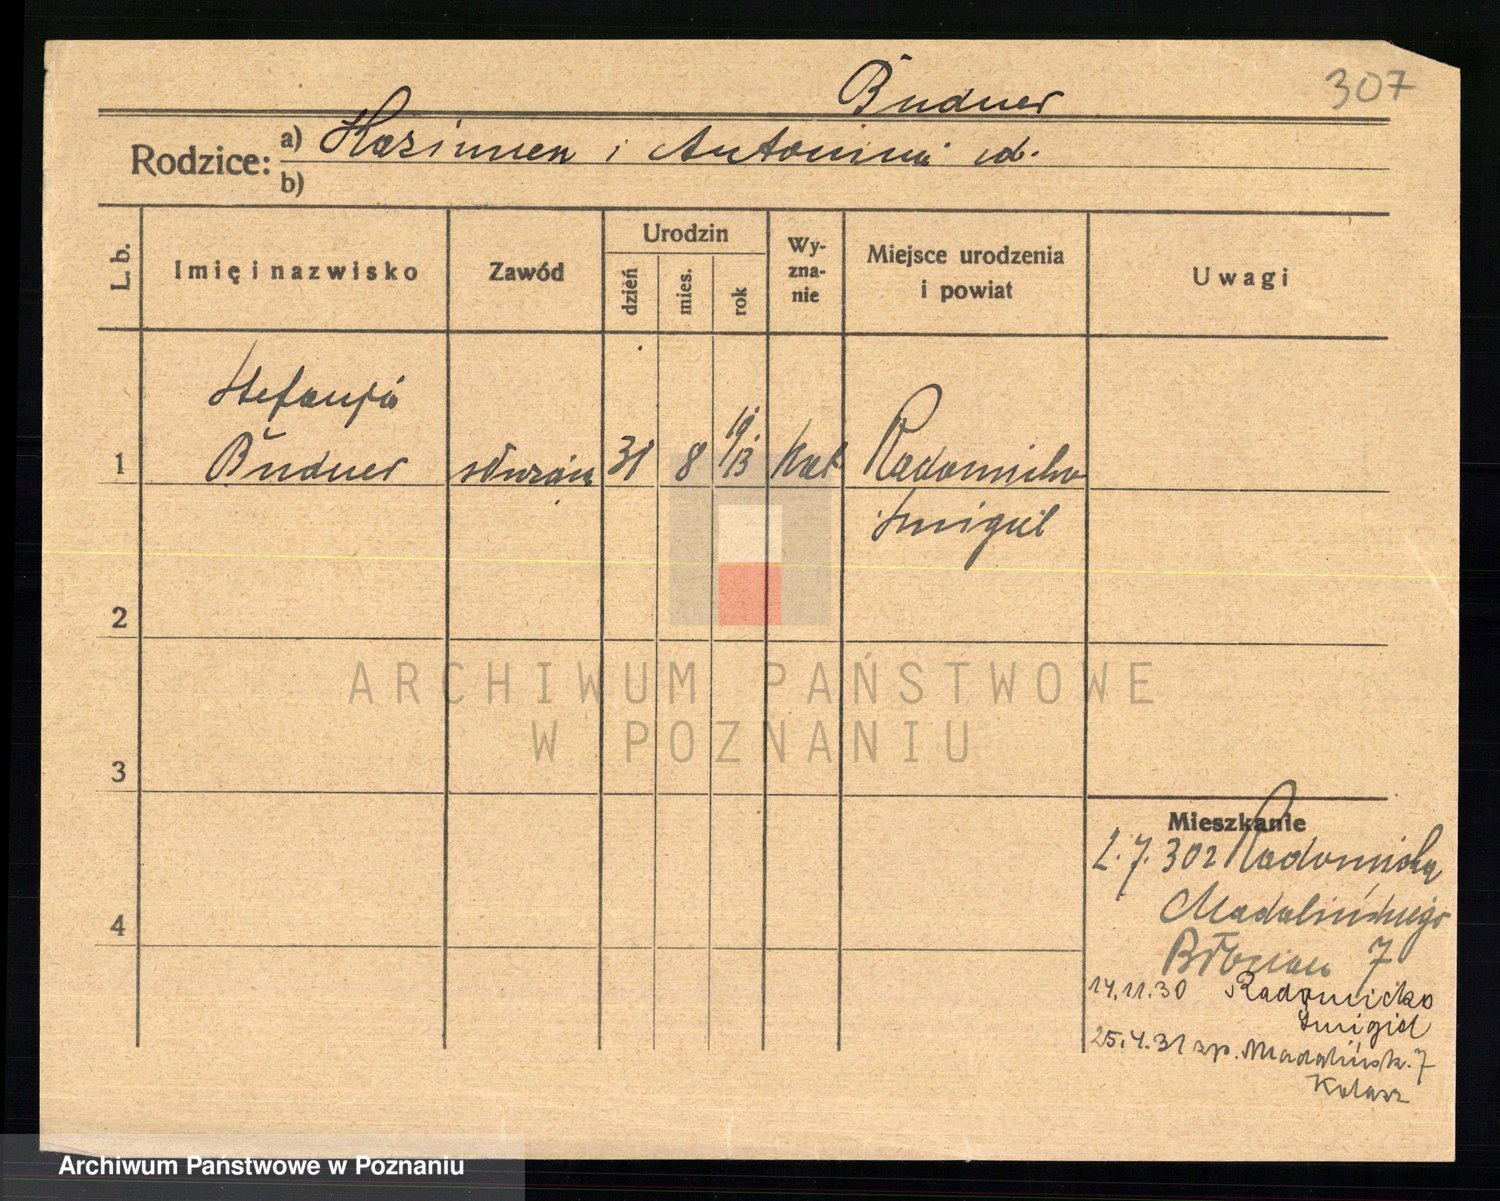 Budner
307
Rodzice:
a) Kazimierz i Antonina
b)
L. b.
Imię i nazwisko
Zawód
Urodzin
dzień
mies.
rok
Wy-
zna-
nie
Miejsce urodzenia
i powiat
Uwagi
Stefanja
1 Budner służąca 31 8 19/13 Kat Radomicko
Śmigiel
2
3
4
ARCHIWUM PAŃSTWOWE
W POZNANIU
Mieszkanie
2.7.30 z Radomicka
Madalińskiego
7
14.11.30 Radomicko
Śmigiel
25.4.31 zp. Madalińsk. 7
Archiwum Państwowe w Poznaniu